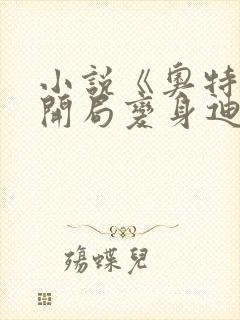 小說《奧特
開局變身迪
殤蝶兒